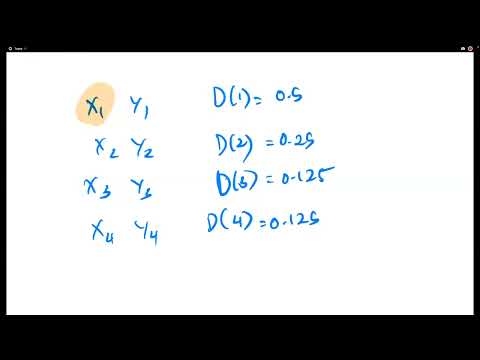 X1 Y1 D(1) = 0.5
X2 Y2 D(2) = 0.25
X3 Y3 D(3) = 0.125
X4 Y4 D(4) = 0.125